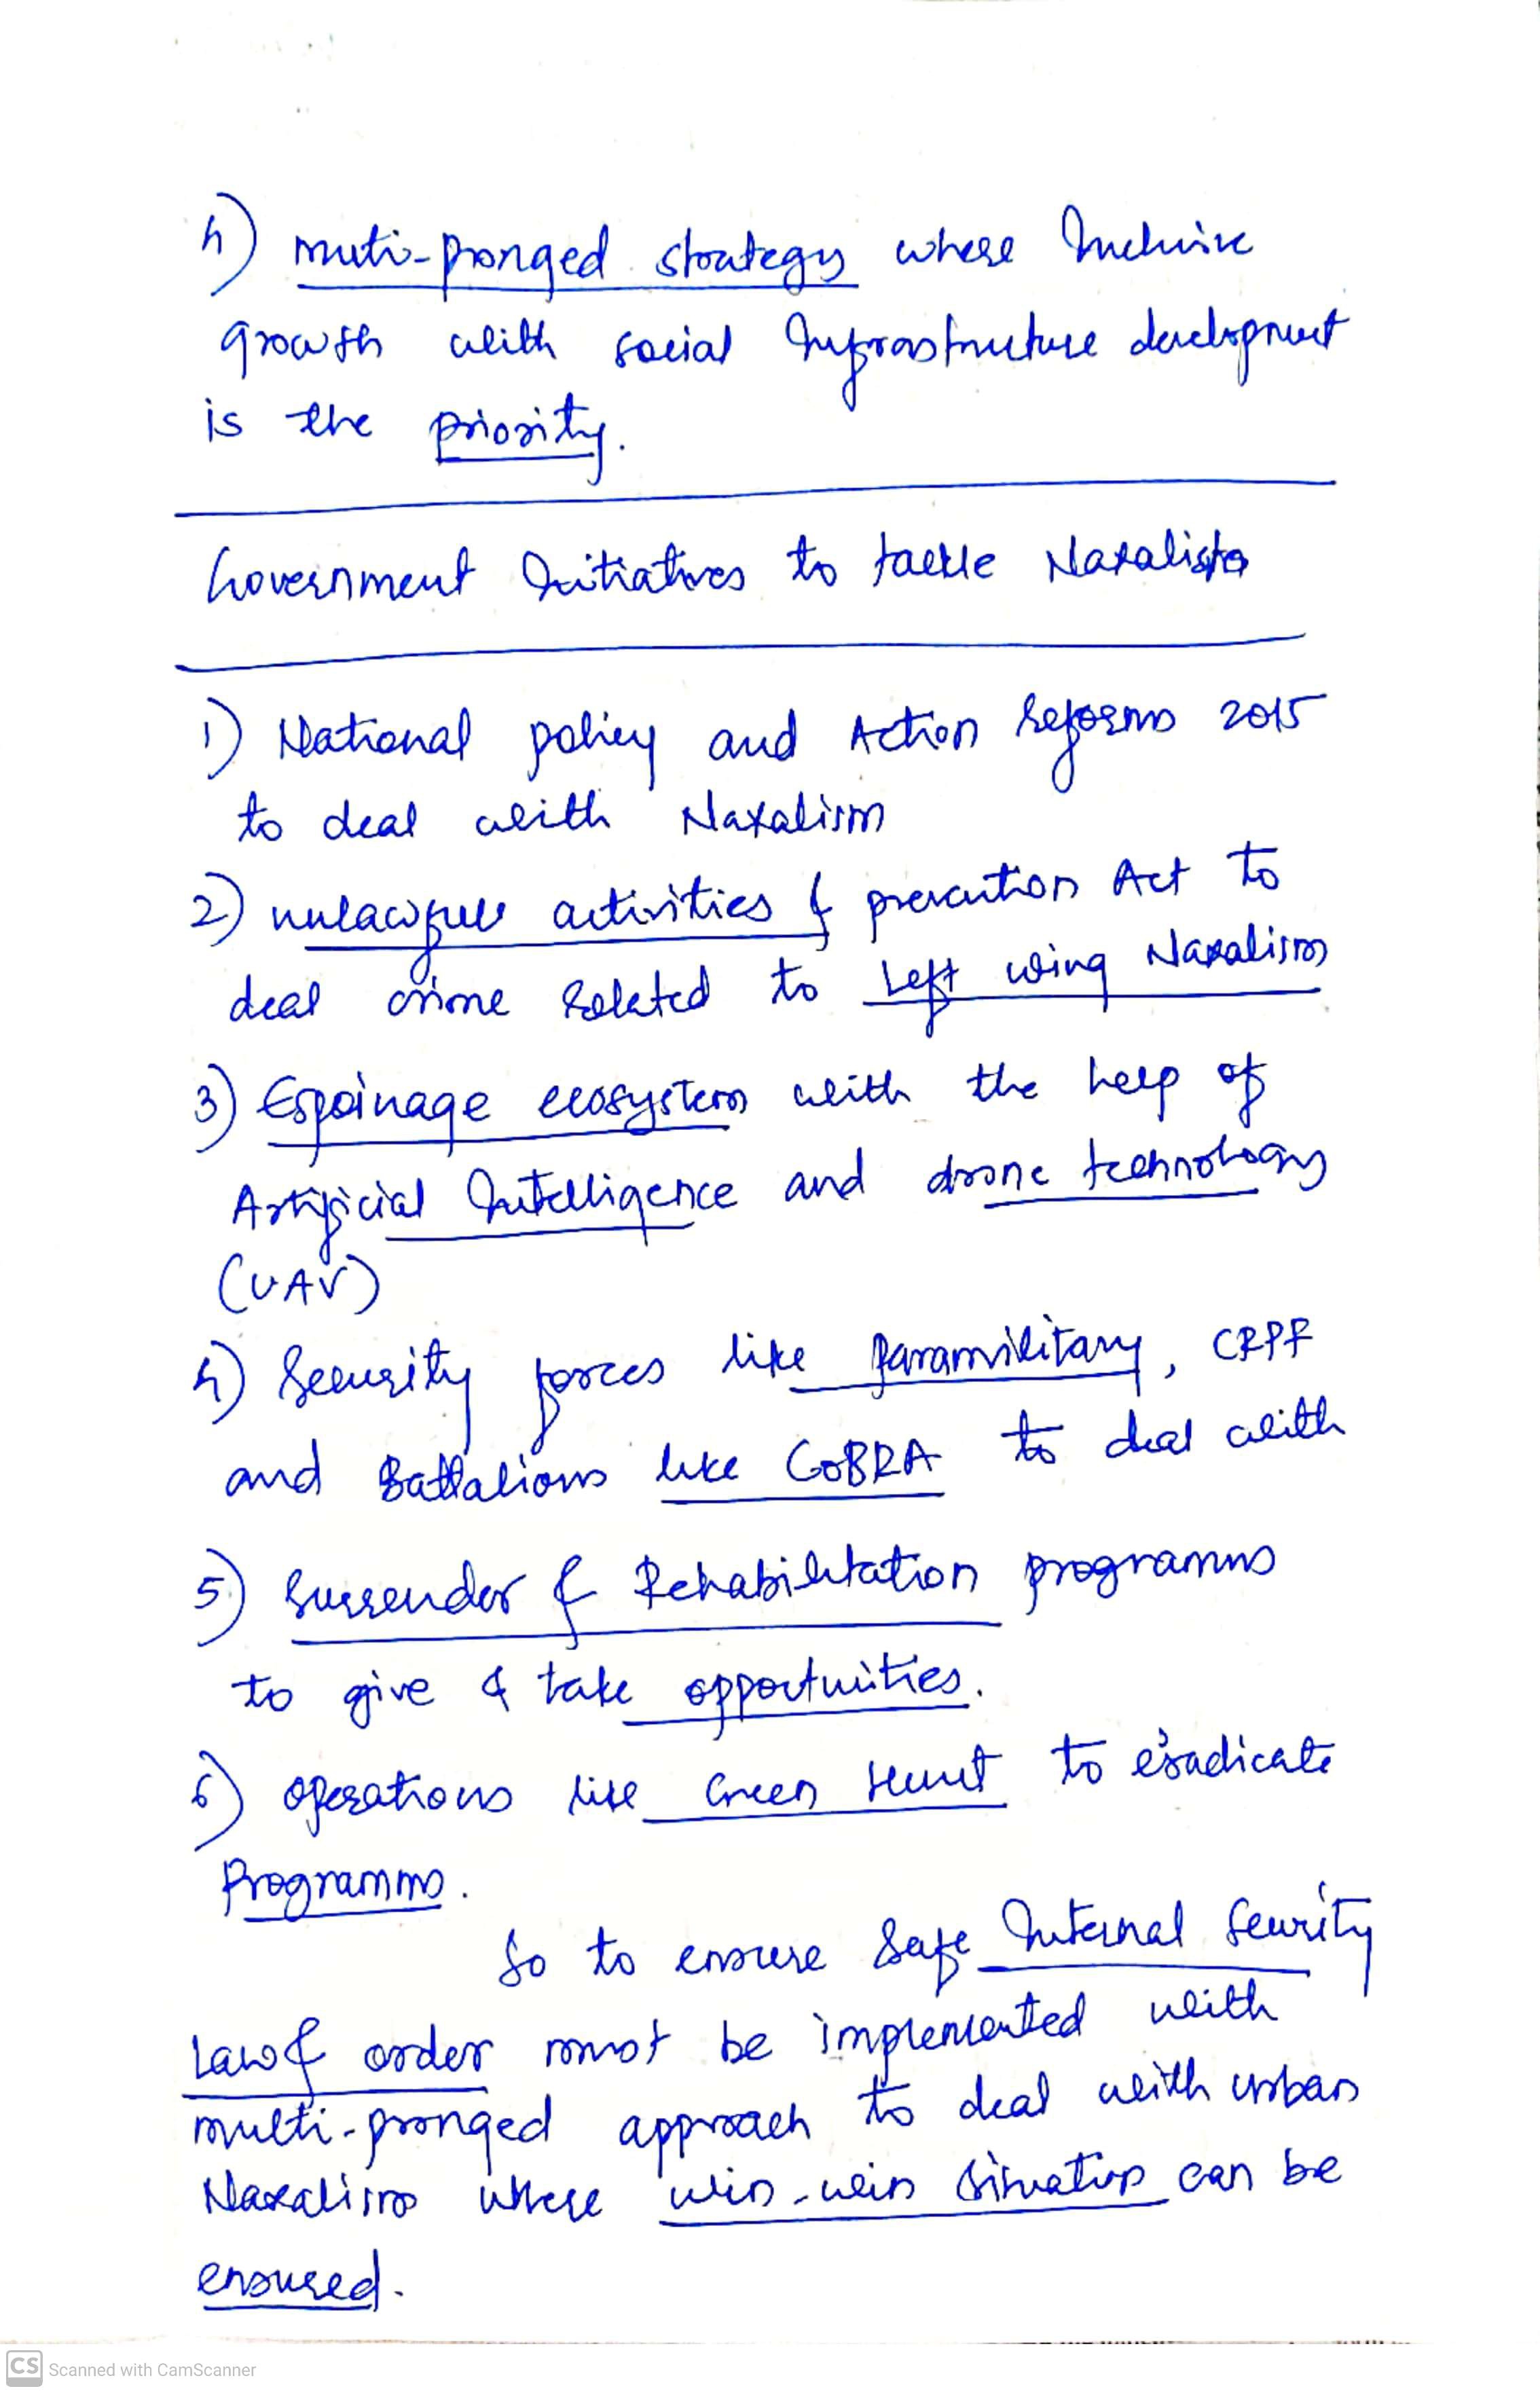 4) muti-pronged strategy where Inclusive
growth with social Infrastructure development
is the priority.
Government Initiatives to tackle Naxalists
1) National policy and Action Reforms 2015
to deal with Naxalism
2) unlawfull activities & prevention Act to
deal crime related to Left wing Naxalism
3) Espoinage ecosystem with the help of
Artificial Intelligence and drone technology
(UAV)
4) Security forces like Paramilitary, CRPF
and Battalions like CoBRA to deal with
5) Surrender & Rehabilitation programms
to give & take opportunities.
6) operations like Green Hunt to eradicate
Programms.
So to ensure Safe Internal Security
Law & order must be implemented with
multi-pronged approach to deal with urban
Naxalism where win-win situation can be
ensured.
CS Scanned with CamScanner